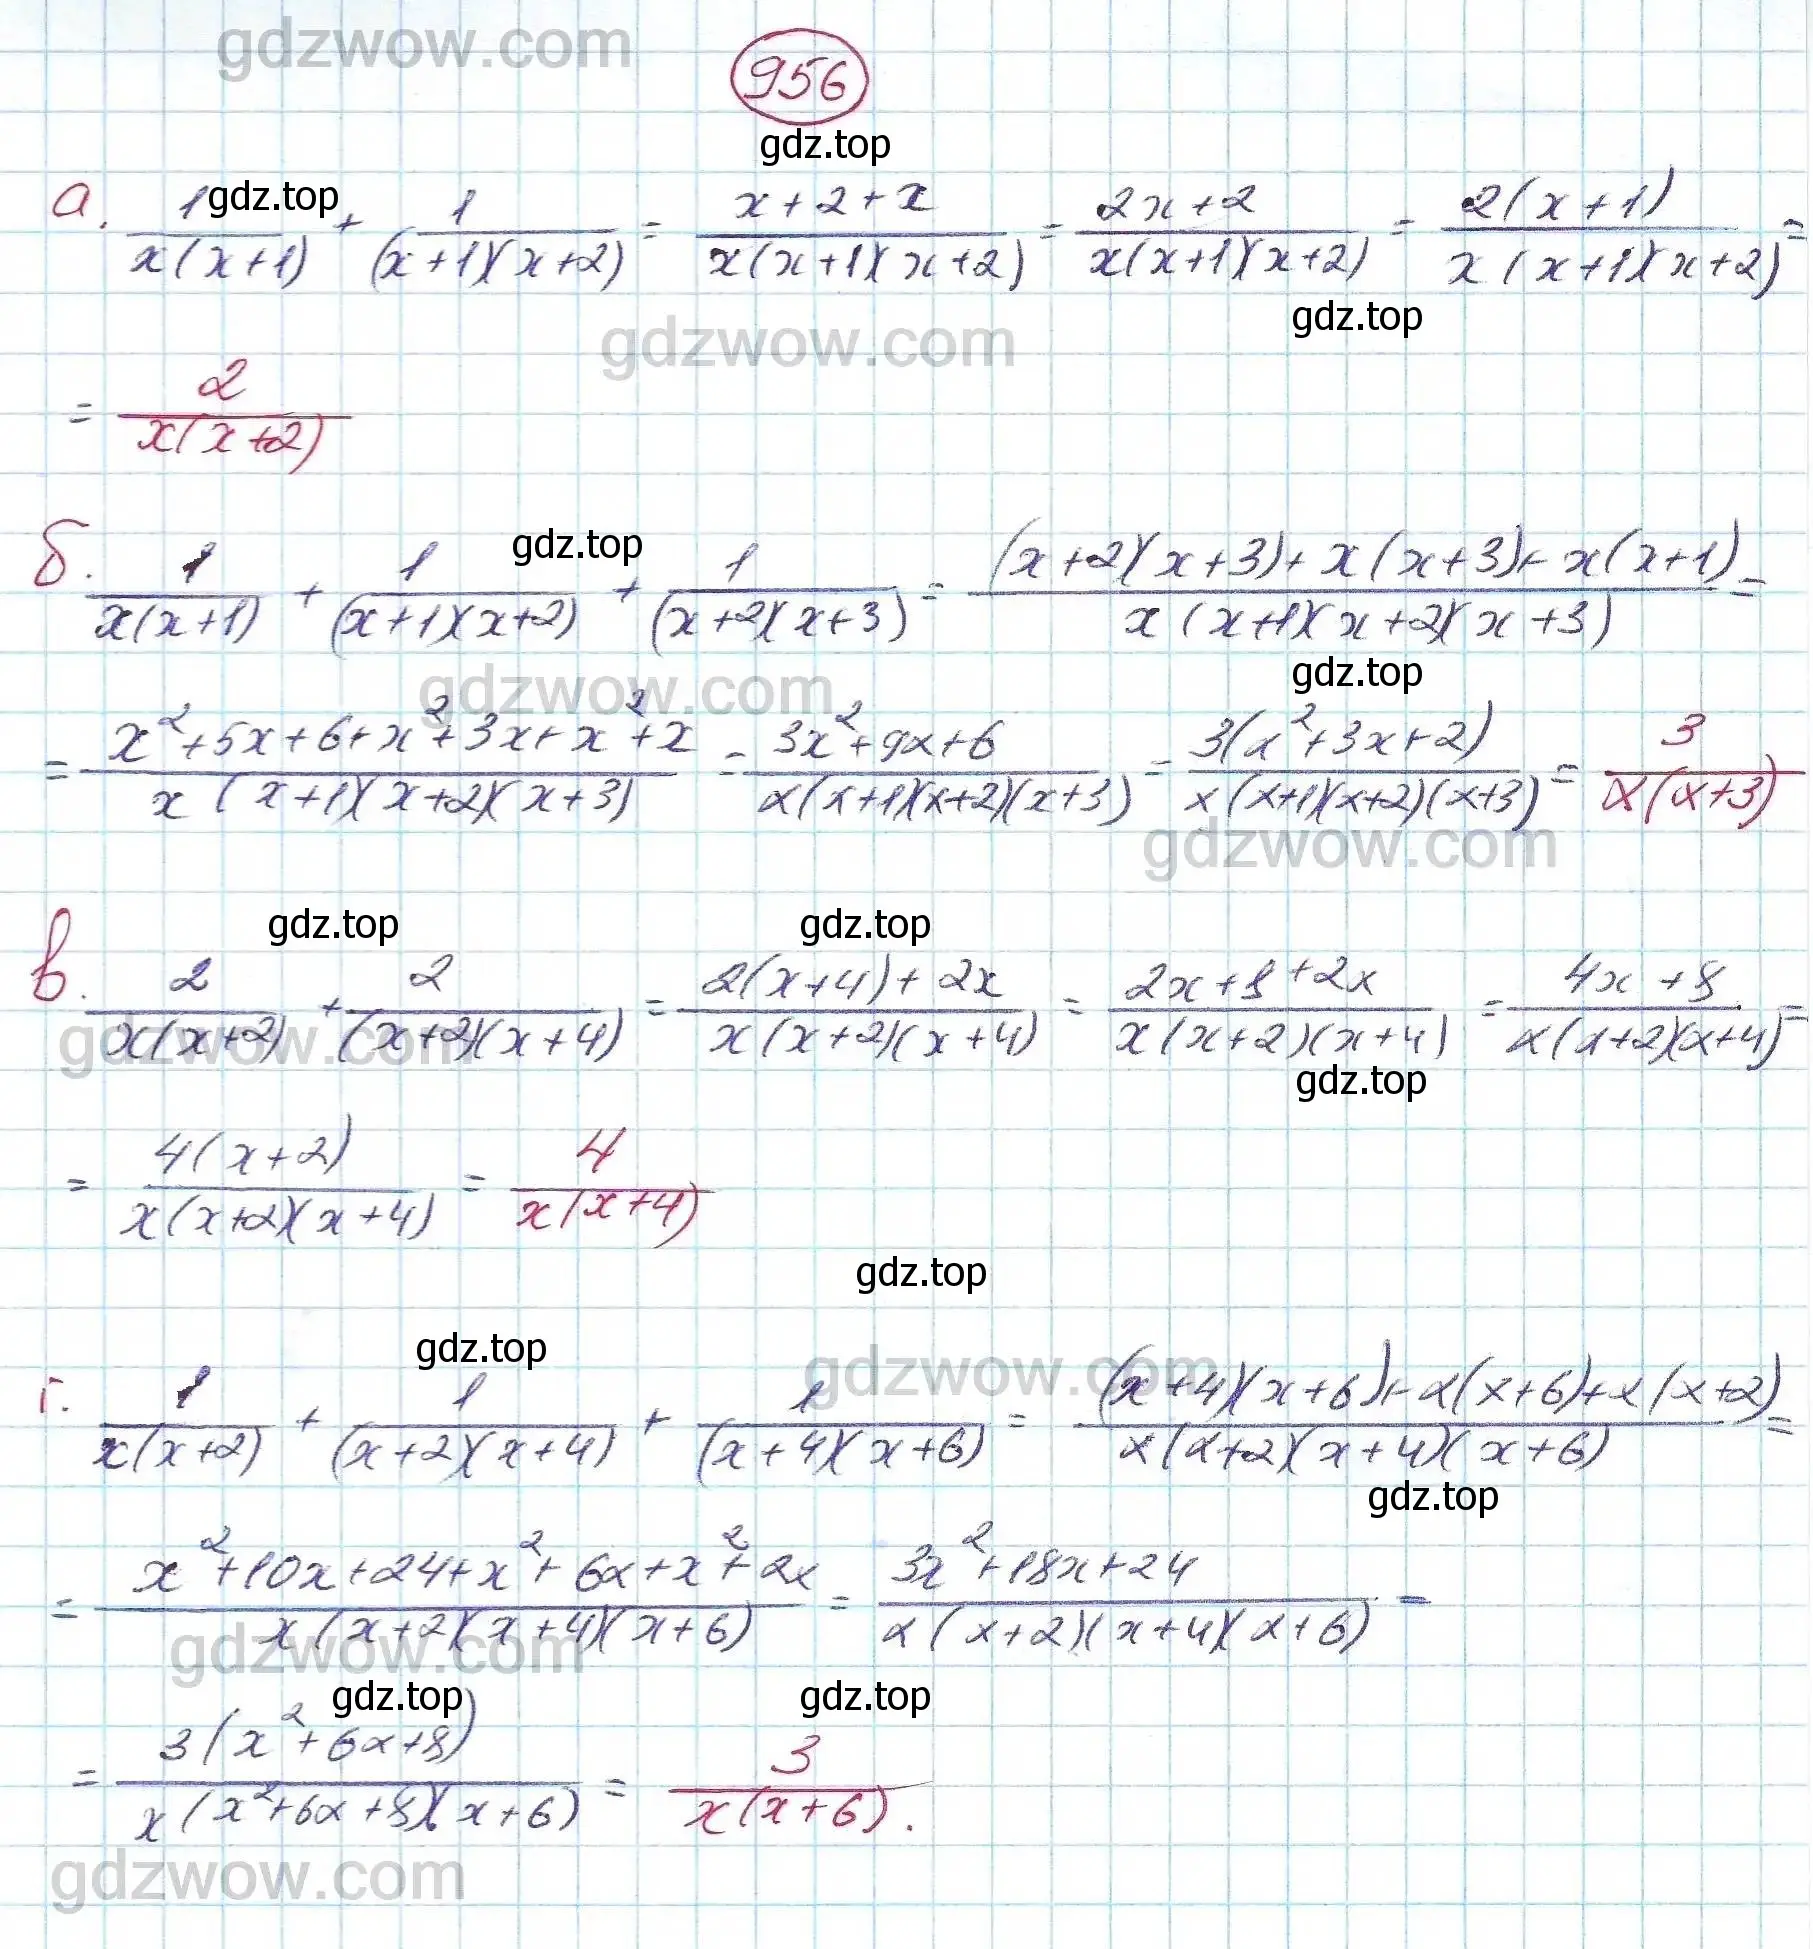 gdzwow.com
956
gdz.top
а. 1/(x(x+1)) + 1/((x+1)(x+2)) = (x+2+x)/(x(x+1)(x+2)) = (2x+2)/(x(x+1)(x+2)) = 2(x+1)/(x(x+1)(x+2)) =
gdz.top
gdz.top
gdzwow.com
= 2/(x(x+2))
gdz.top
б. 1/(x(x+1)) + 1/((x+1)(x+2)) + 1/((x+2)(x+3)) = ((x+2)(x+3)+x(x+3)+x(x+1))/(x(x+1)(x+2)(x+3)) =
gdz.top
gdzwow.com
= (x²+5x+6+x²+3x+x²+x)/(x(x+1)(x+2)(x+3)) = (3x²+9x+6)/(x(x+1)(x+2)(x+3)) = 3(x²+3x+2)/(x(x+1)(x+2)(x+3)) = 3/(x(x+3))
gdzwow.com
gdz.top gdz.top
в. 2/(x(x+2)) + 2/((x+2)(x+4)) = (2(x+4)+2x)/(x(x+2)(x+4)) = (2x+8+2x)/(x(x+2)(x+4)) = (4x+8)/(x(x+2)(x+4)) =
gdzwow.com
gdz.top
= 4(x+2)/(x(x+2)(x+4)) = 4/(x(x+4))
gdz.top
gdz.top
gdzwow.com
г. 1/(x(x+2)) + 1/((x+2)(x+4)) + 1/((x+4)(x+6)) = ((x+4)(x+6)+x(x+6)+x(x+2))/(x(x+2)(x+4)(x+6)) =
gdz.top
= (x²+10x+24+x²+6x+x²+2x)/(x(x+2)(x+4)(x+6)) = (3x²+18x+24)/(x(x+2)(x+4)(x+6)) =
gdzwow.com
gdz.top gdz.top
= 3(x²+6x+8)/(x(x²+6x+8)(x+6)) = 3/(x(x+6)).
gdzwow.com